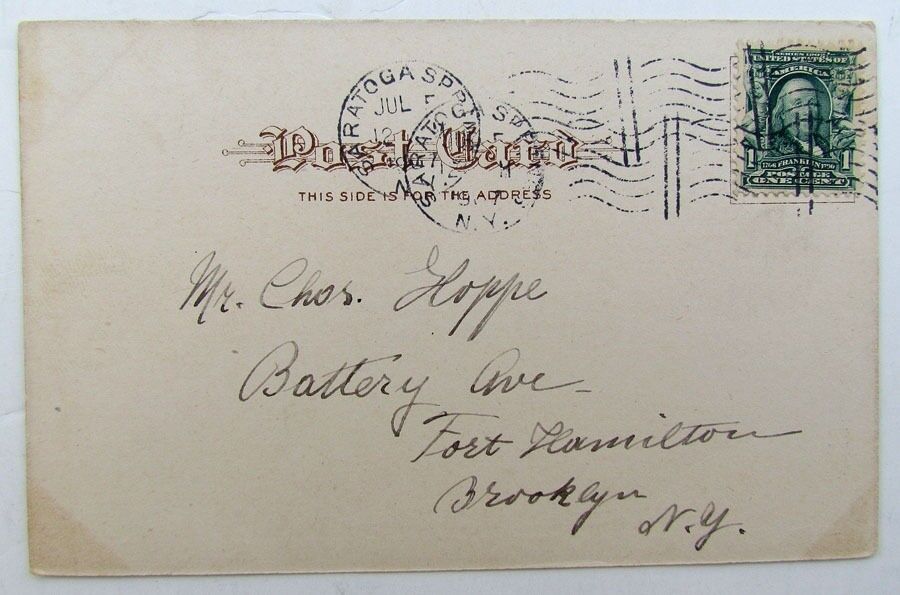 SARATOGA SPR
JUL
12
N.Y.
Post Card
THIS SIDE IS FOR THE ADDRESS
SERIES 1902
UNITED STATES OF
AMERICA
1 FRANKLIN 1
POSTAGE
ONE CENT
Mr. Chas. Hoppe
Battery Ave
Fort Hamilton
Brooklyn
N.Y.